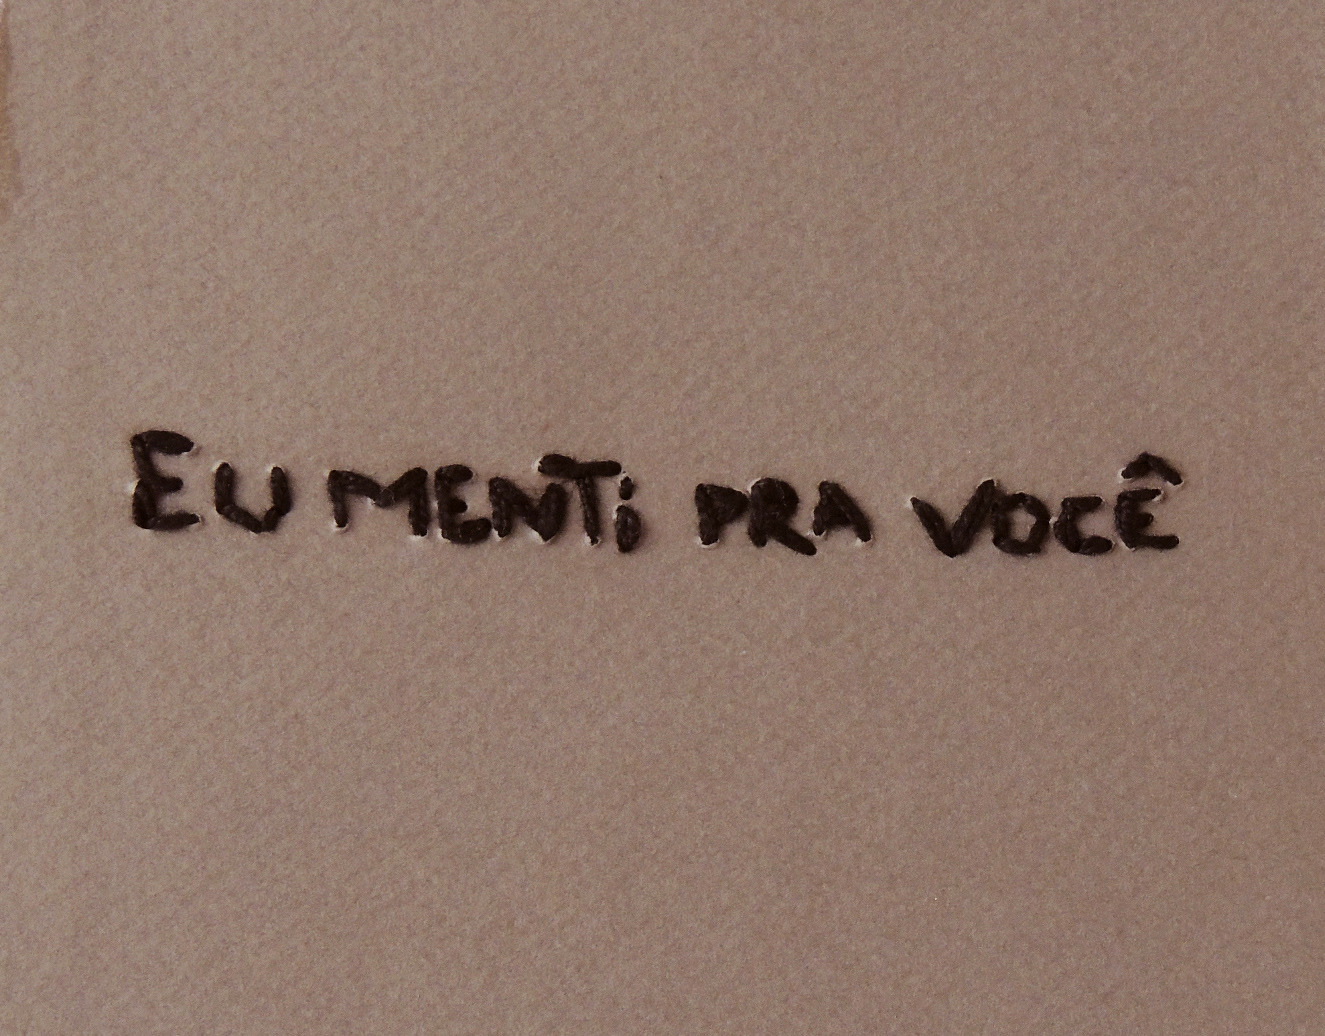 EU MENTi PRA VOCÊ